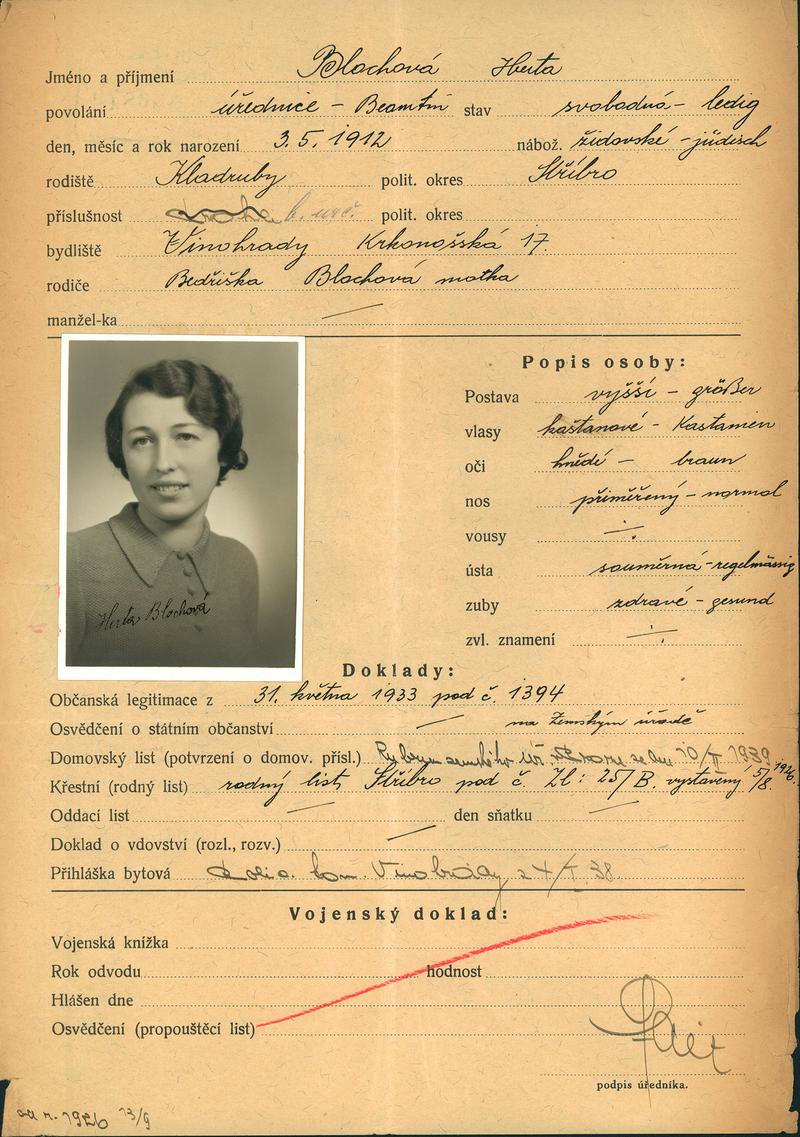 Jméno a příjmení Blochová Herta
povolání úřednice - Beamtin stav svobodná - ledig
den, měsíc a rok narození 3. 5. 1912 nábož. židovské - jüdisch
rodiště Kladruby polit. okres Stříbro
příslušnost polit. okres
bydliště Vinohrady Krkonošská 17.
rodiče Bedřiška Blochová matka
manžel-ka —
Popis osoby:
Postava vyšší - größer
vlasy kaštanové - Kastanien
oči hnědé - braun
nos přiměřený - normal
vousy ÷
ústa souměrná - regelmässig
zuby zdravé - gesund
zvl. znamení ÷
Herta Blochová
Doklady:
Občanská legitimace z 31. května 1933 pod č. 1394
Osvědčení o státním občanství — na Zemským úřadě
Domovský list (potvrzení o domov. přísl.) 1939
Křestní (rodný list) rodný list Stříbro pod č. Zl: 25/B. vystavený 5/8. 1926.
Oddací list — den sňatku —
Doklad o vdovství (rozl., rozv.) —
Přihláška bytová kom. Vinohrady z 4/I. 38.
Vojenský doklad:
Vojenská knížka
Rok odvodu hodnost
Hlášen dne
Osvědčení (propouštěcí list)
podpis úředníka.
od r. 1926 13/9